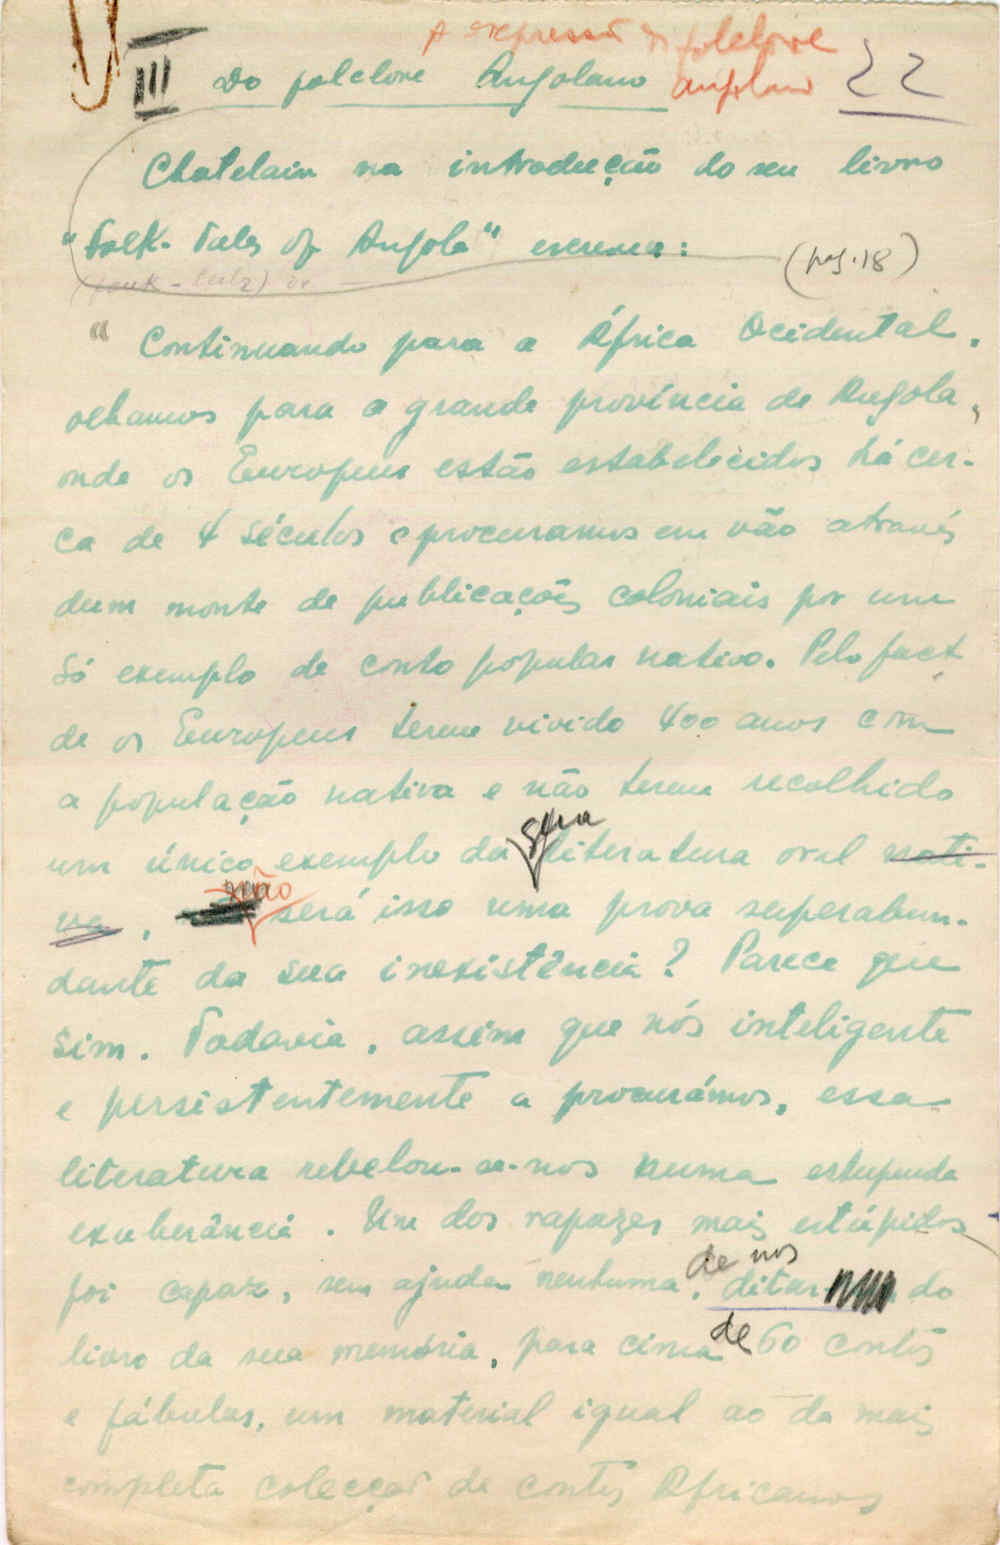 A expressão do folclore
III Do folclore Angolano angolano 22
Chatelain na introdução do seu livro
"Folk-Tales of Angola" escreveu: (pag. 18)
"Continuando para a África Ocidental,
olhamos para a grande província de Angola,
onde os Europeus estão estabelecidos há cer-
ca de 4 séculos e procuramos em vão através
dum monte de publicações coloniais por um
só exemplo de conto popular nativo. Pelo fact
de os Europeus terem vivido 400 anos com
a população nativa e não terem recolhido
um único exemplo da sua literatura oral nati-
va, não será isso uma prova superabun-
dante da sua inexistência? Parece que
sim. Todavia, assim que nós inteligente
e persistentemente a procurámos, essa
literatura rebelou-se-nos numa estupenda
exuberância. Um dos rapazes mais estúpidos
foi capaz, sem ajuda nenhuma, de nos ditar do
livro da sua memória, para cima de 60 contos
e fábulas, um material igual ao da mais
completa colecção de contos Africanos